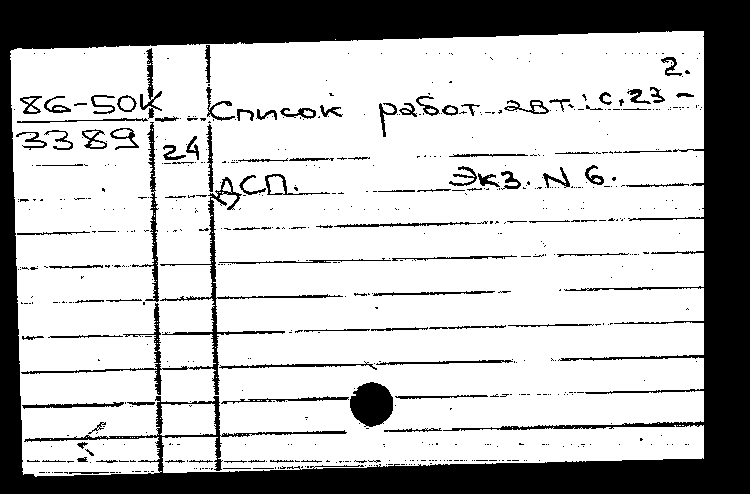 2.
86-50К Список работ авт.: с.23-
3389 24
ДСП. Экз. N 6.